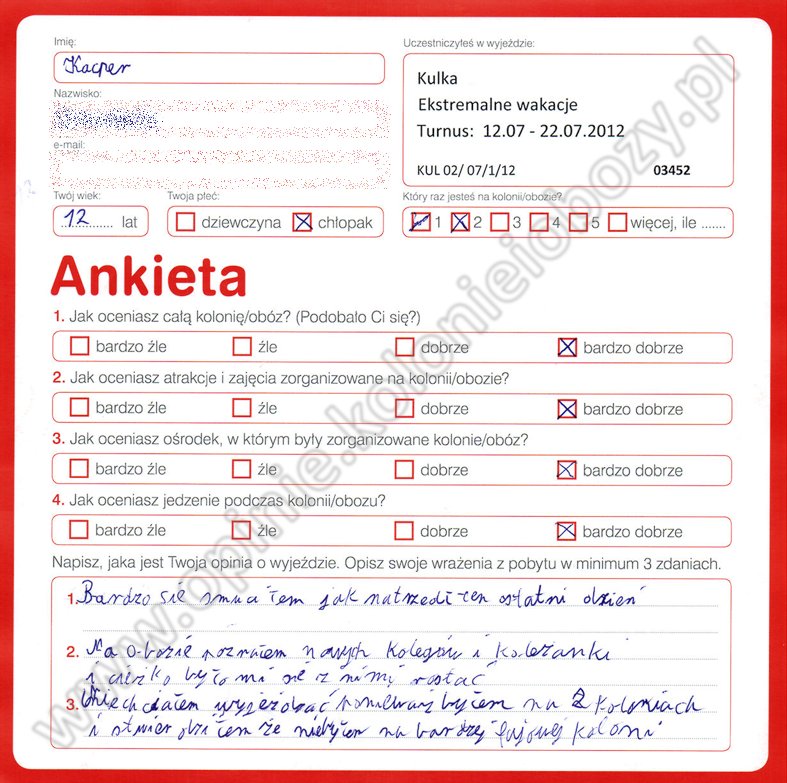 Imię:
Kacper
Nazwisko:
e-mail:
Twój wiek:
12 lat
Twoja płeć:
dziewczyna chłopak
Uczestniczyłeś w wyjeździe:
Kulka
Ekstremalne wakacje
Turnus: 12.07 - 22.07.2012
KUL 02/ 07/1/12 03452
Który raz jesteś na kolonii/obozie?
1 2 3 4 5 więcej, ile .......
Ankieta
1. Jak oceniasz całą kolonię/obóz? (Podobało Ci się?)
bardzo źle źle dobrze bardzo dobrze
2. Jak oceniasz atrakcje i zajęcia zorganizowane na kolonii/obozie?
bardzo źle źle dobrze bardzo dobrze
3. Jak oceniasz ośrodek, w którym były zorganizowane kolonie/obóz?
bardzo źle źle dobrze bardzo dobrze
4. Jak oceniasz jedzenie podczas kolonii/obozu?
bardzo źle źle dobrze bardzo dobrze
Napisz, jaka jest Twoja opinia o wyjeździe. Opisz swoje wrażenia z pobytu w minimum 3 zdaniach.
1. Bardzo się smuciłem jak natrzedł ten ostatni dzień
2. Na obozie poznałem nowych kolegów i koleżanki
i ciężko było mi się z nimi rostać
3. Niechciałem wyjeżdżać poniewarz byłem na 2 koloniach
i stwierdziłem że niebyłem na bardzej fajowej koloni
www.opinie.kolonieiobozy.pl